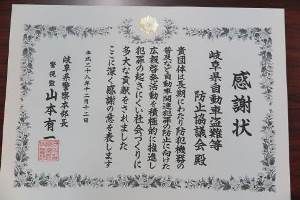 感謝状
岐阜県自動車盗難等
防止協議会殿
貴団体は長期にわたり防犯機器の
普及など自動車関連犯罪の防止に向けた
広報啓発活動を積極的に推進し
犯罪の起きにくい社会づくりに
多大な貢献をされました
ここに深く感謝の意を表します
平成二十八年十二月十二日
岐阜県警察本部長
警視長 山本有一